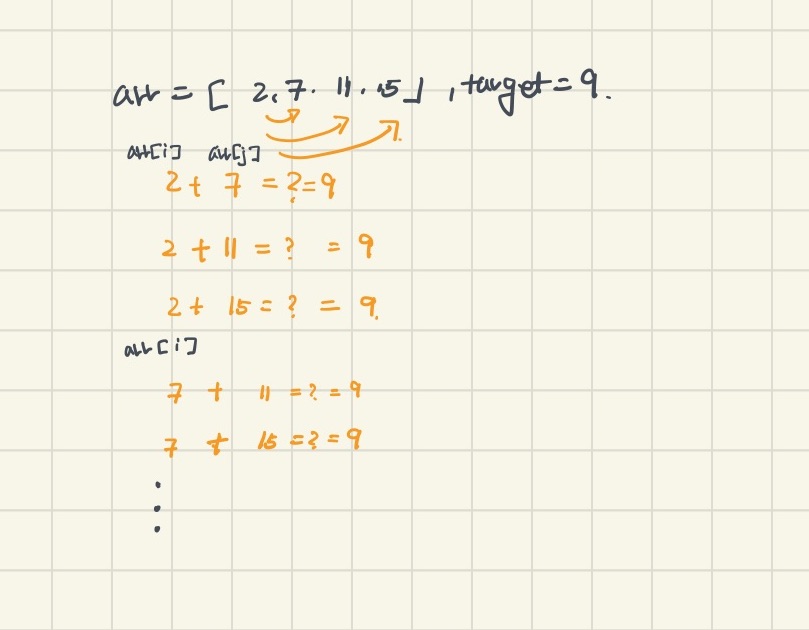 arr = [ 2, 7. 11. 15 ] , target = 9.
arr[i] arr[j]
2 + 7 = ? = 9
2 + 11 = ? = 9
2 + 15 = ? = 9.
arr[i]
7 + 11 = ? = 9
7 + 15 = ? = 9
⋮